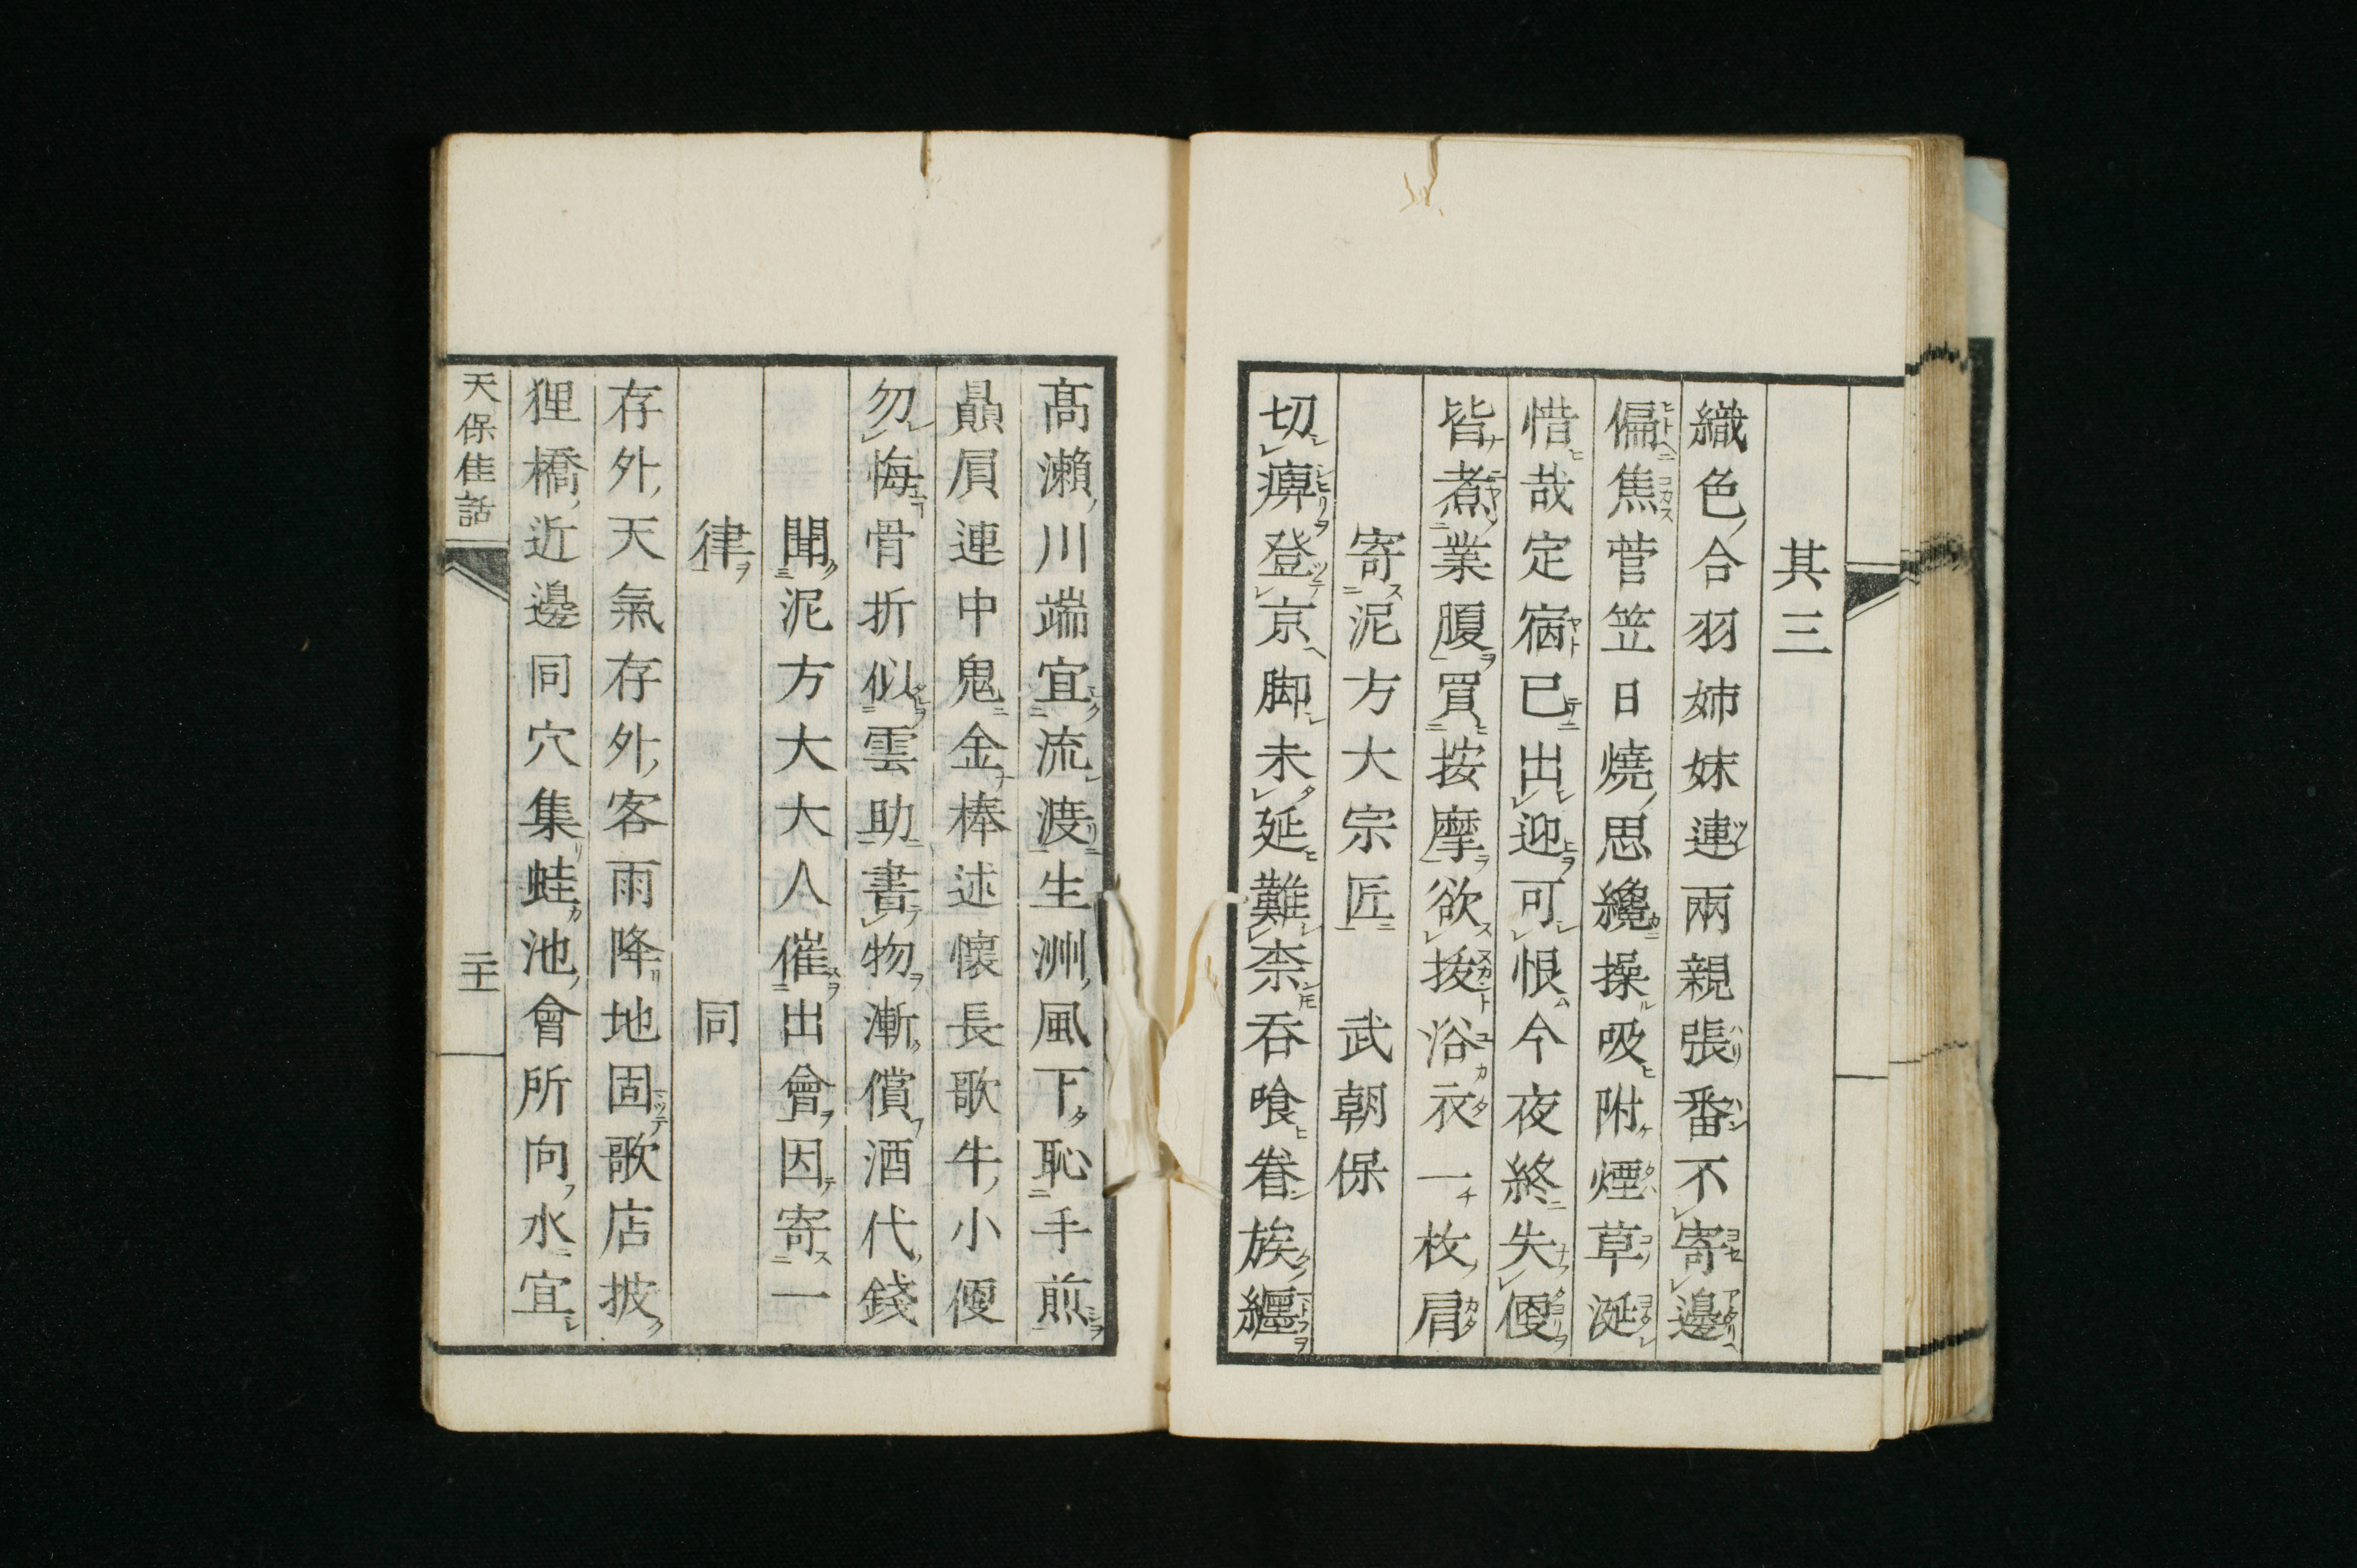 其三
織色合羽姉妹連兩親張番不寄邊
偏焦菅笠日燒思纔操吸附煙草涎
惜哉定宿已出迎可恨今夜終失便
皆煮業腹買按摩欲拔浴衣一枚肩
寄泥方大宗匠 武朝保
切痺登京脚未延難柰吞喰眷族纒
高瀬川端宜流渡生洲風下恥手煎
贔屓連中鬼金棒述懐長歌牛小便
勿悔骨折似雲助書物漸償酒代錢
聞泥方大大人催出會因寄一
律 同
存外天氣存外客雨降地固歌店披
狸橋近邊同穴集蛙池會所向水宜
天保佳話 二十